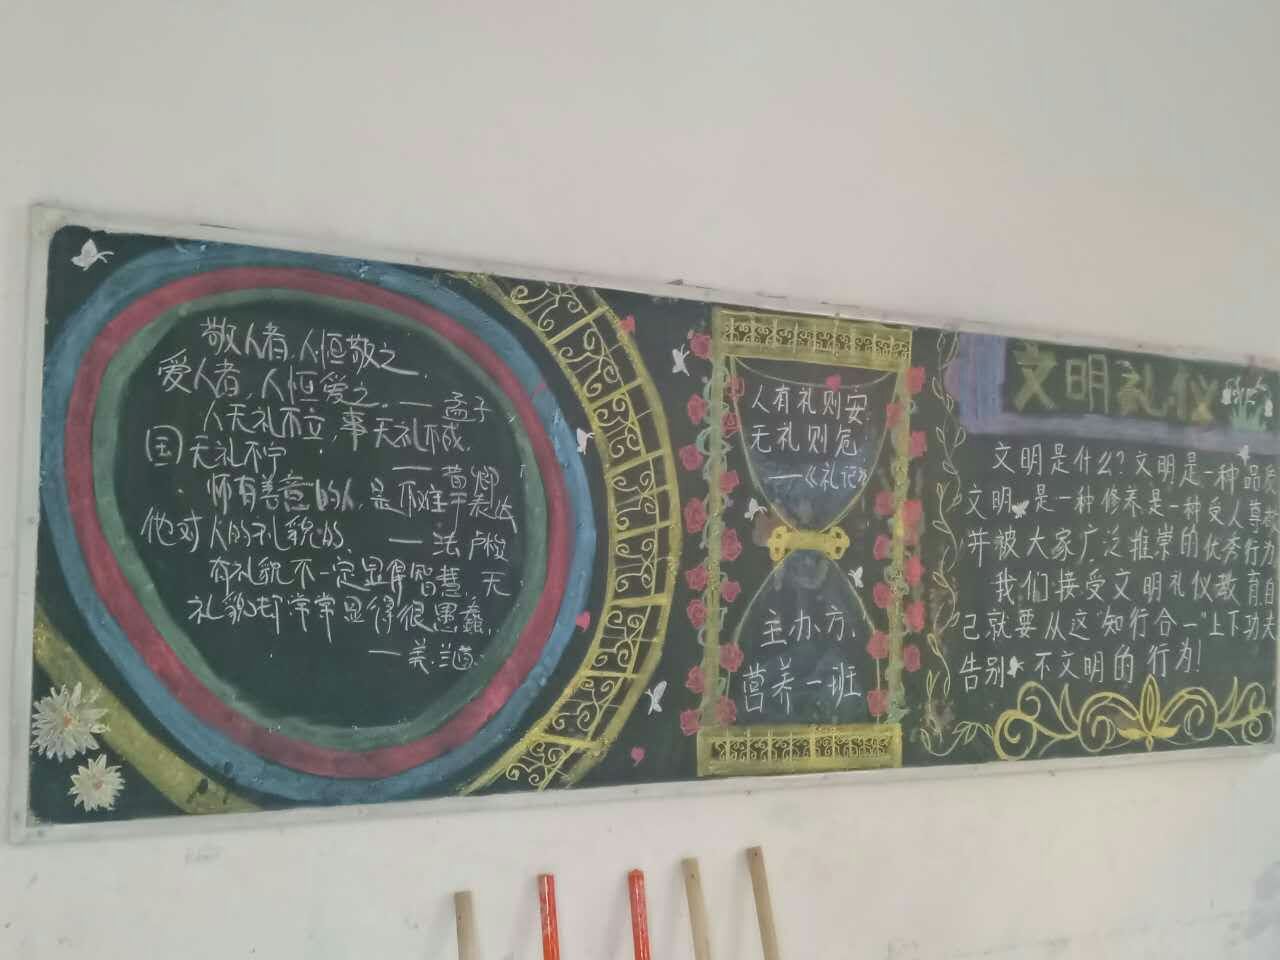 敬人者,人恒敬之.
爱人者,人恒爱之.——孟子
人无礼不立,事无礼不成,
国无礼不宁
——荀卿
怀有善意的人,是不难于表达
他对人的礼貌的.——法 卢梭
有礼貌不一定显得智慧,无
礼貌却常常显得很愚蠢.
——美.兰道
人有礼则安,
无礼则危.
——《礼记》
主办方.
营养一班
文明礼仪
文明是什么?文明是一种品质
文明是一种修养是一种受人尊敬
并被大家广泛推崇的优秀行为
我们接受文明礼仪教育自
己就要从这"知行合一"上下功夫
告别不文明的行为!